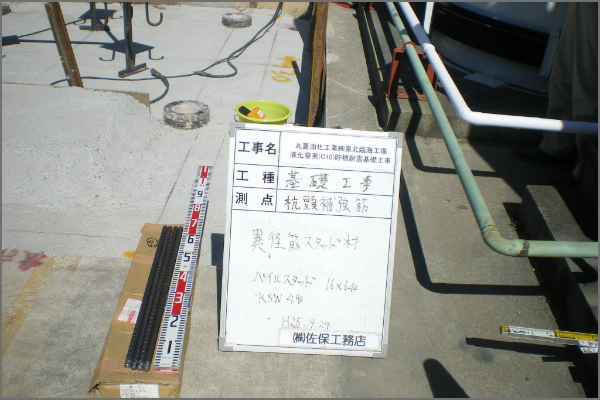 工事名
丸善油化工業㈱泉北臨海工場
液化窒素(C10)貯槽耐震基礎工事
工種 基礎工事
測点 杭頭補強筋
異径筋スタッド材
パイルスタッド 16×64
KSW 490
H25.9.27
㈱佐保工務店
9
8
7
6
5
4
3
2
1